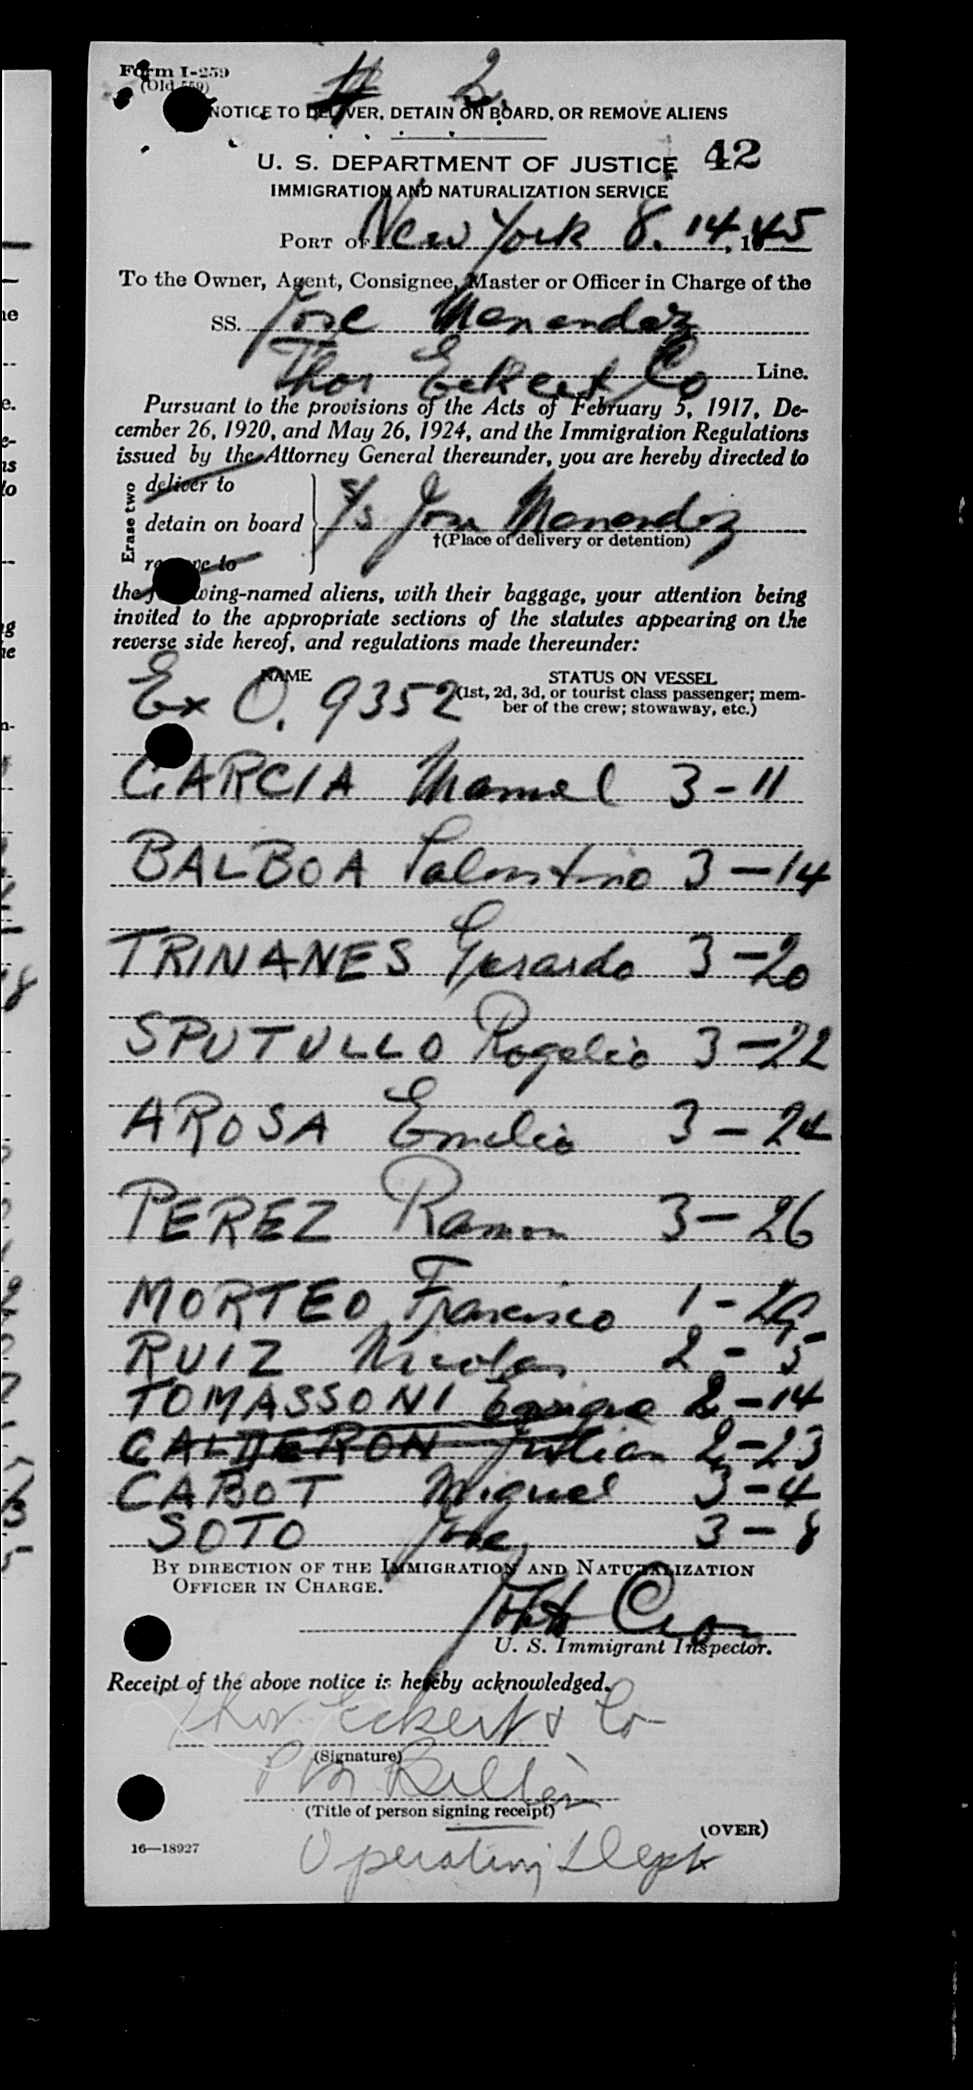 Form I-259
(Old 559)
# 2.
NOTICE TO DELIVER, DETAIN ON BOARD, OR REMOVE ALIENS
U. S. DEPARTMENT OF JUSTICE 42
IMMIGRATION AND NATURALIZATION SERVICE
PORT OF New York 8.14, 1945
To the Owner, Agent, Consignee, Master or Officer in Charge of the
SS. Jose Menendez
Thor Eckert Co Line.
Pursuant to the provisions of the Acts of February 5, 1917, De-
cember 26, 1920, and May 26, 1924, and the Immigration Regulations
issued by the Attorney General thereunder, you are hereby directed to
Erase two
deliver to
detain on board S/s Jose Menendez
†(Place of delivery or detention)
remove to
the following-named aliens, with their baggage, your attention being
invited to the appropriate sections of the statutes appearing on the
reverse side hereof, and regulations made thereunder:
NAME STATUS ON VESSEL
Ex O. 9352 (1st, 2d, 3d, or tourist class passenger; mem-
ber of the crew; stowaway, etc.)
GARCIA Manuel 3-11
BALBOA 3-14
TRINANES Gerardo 3-20
SPUTULLO Rogelio 3-22
AROSA Emilio 3-24
PEREZ Ramon 3-26
MORTEO Francisco 1-29
RUIZ Nicolas 2-5
TOMASSONI Enrique 2-14
CALDERON Julian 2-23
CABOT Miguel 3-4
SOTO Jose 3-8
BY DIRECTION OF THE IMMIGRATION AND NATURALIZATION
OFFICER IN CHARGE.
U. S. Immigrant Inspector.
Receipt of the above notice is hereby acknowledged.
Thor Eckert & Co
(Signature)
(Title of person signing receipt)
(OVER)
16—18927
Operating Dept